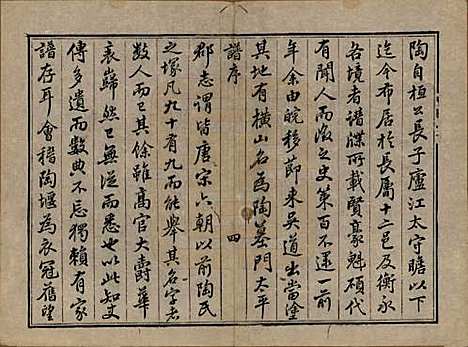 陶自桓公長子廬江太守瞻以下
迄今布居於長屬十二邑及衡永
各境者譜牒所載賢豪魁碩代
有聞人而湲之史策百不遝一前
年余由皖移節来吳道出當塗
其地有橫山名為陶墓門太平
譜序
四
郡志謂皆唐宗六朝以前陶氏
之塚凡九十有九而能舉其名字者
数人而已其餘雖高官大爵華
衮巋然已無從而悉也以此知文
傳多遺而數典不忘獨賴有家
譜存耳會稽陶堰為衣冠舊望